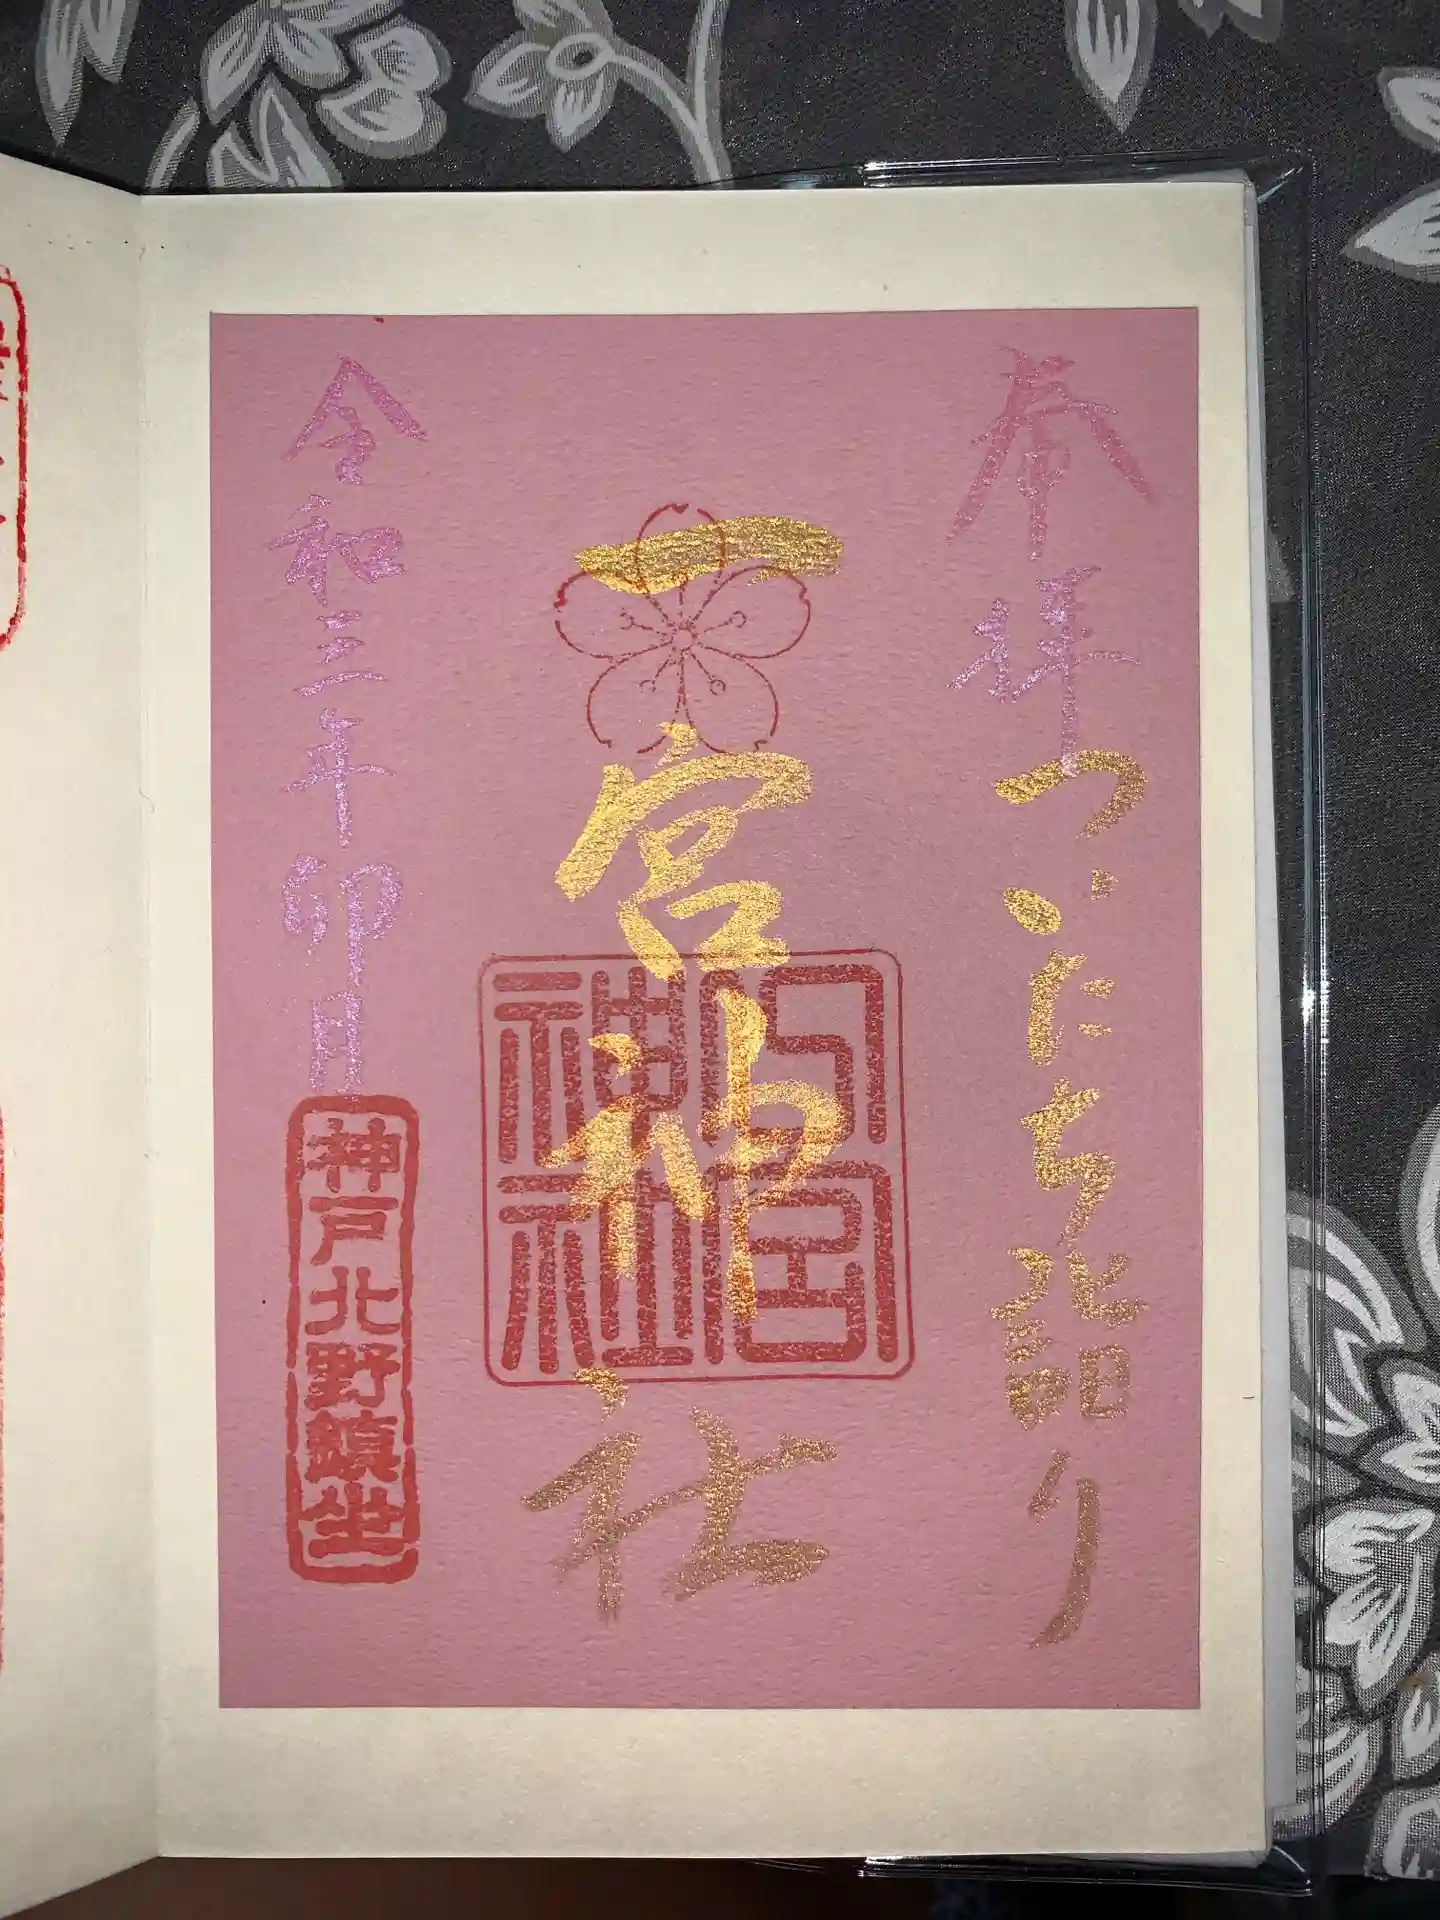 奉拝 ついたち詣り
一宮神社
宮
神社
令和三年卯月
神戸北野鎮坐